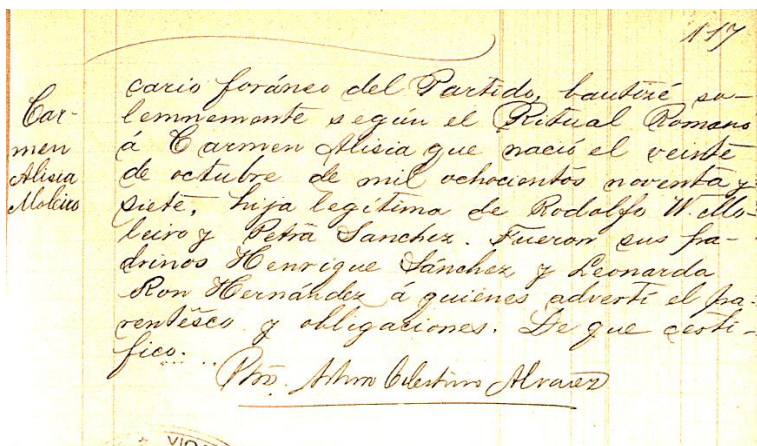 117
Car-
men
Alisia
Moleiro
cario foráneo del Partido, bautizé so-
lemnemente según el Ritual Romano
á Carmen Alisia que nació el veinte
de octubre de mil ochocientos noventa y
siete, hija legítima de Rodolfo W. Mo-
leiro y Petra Sanchez. Fueron sus pa-
drinos Henrique Sánchez y Leonarda
Ron Hernández á quienes advertí el pa-
rentesco y obligaciones. De que certi-
fico...
Pbro. Celestino Alvarez